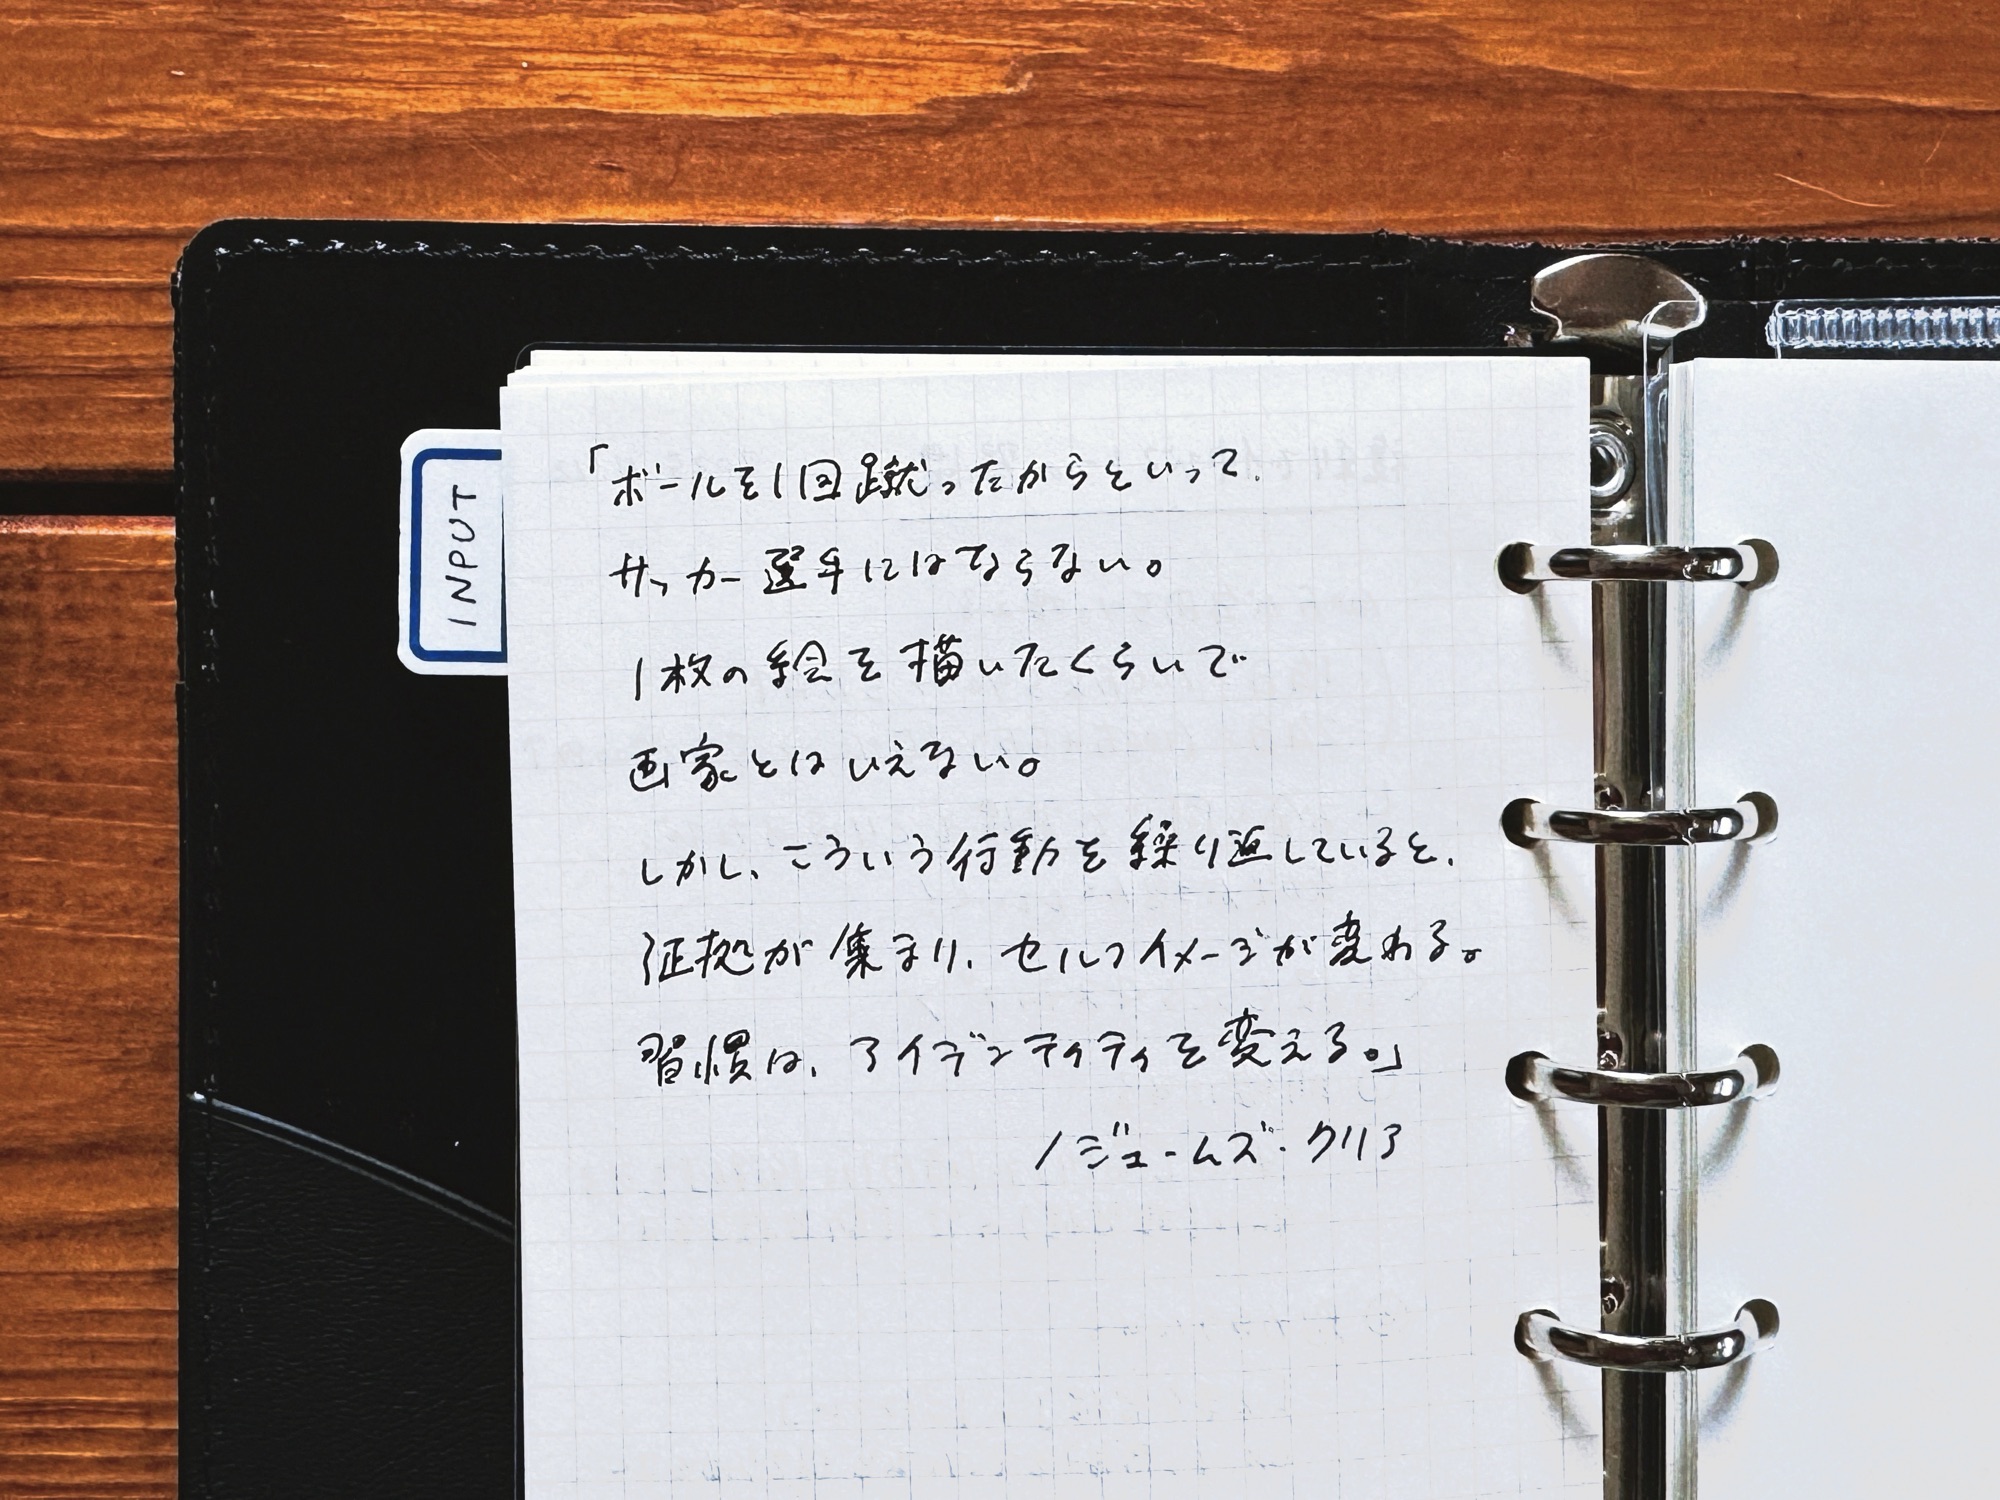 INPUT
「ボールを1回蹴ったからといって、
サッカー選手にはならない。
1枚の絵を描いたくらいで
画家とはいえない。
しかし、こういう行動を繰り返していると、
証拠が集まり、セルフイメージが変わる。
習慣は、アイデンティティを変える。」
/ジェームズ・クリア